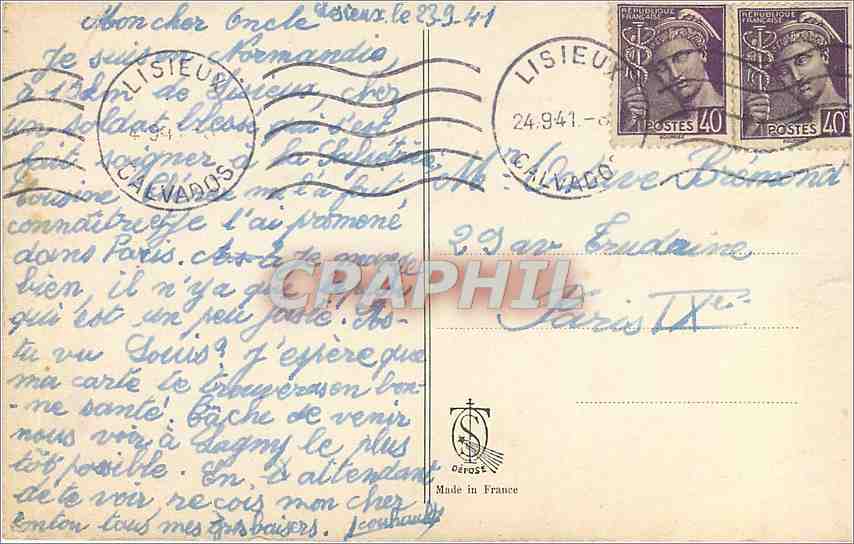 Lisieux, le 23-9-41
Mon cher Oncle
Je suis en Normandie,
à 15km de Lisieux, chez
un soldat blessé qui s'est
fait soigner à la Salpétrière
Cousine m'a fait
connaître je l'ai promené
dans Paris. Je mange
bien, il n'y a que le
qui est un peu juste. As-
tu vu Louis? J'espère que
ma carte te trouvera en bon-
-ne santé. Tâche de venir
nous voir à Lagny le plus
tôt possible. En attendant
de te voir reçois mon cher
tonton tous mes gros baisers.
LISIEUX
CALVADOS
LISIEUX
24.9.41
CALVADOS
RÉPUBLIQUE FRANÇAISE
POSTES 40c
RÉPUBLIQUE FRANÇAISE
POSTES 40c
Mr Brémond
29 av Trudaine
Paris IXe
CPAPHIL
TS
DÉPOSÉ
Made in France